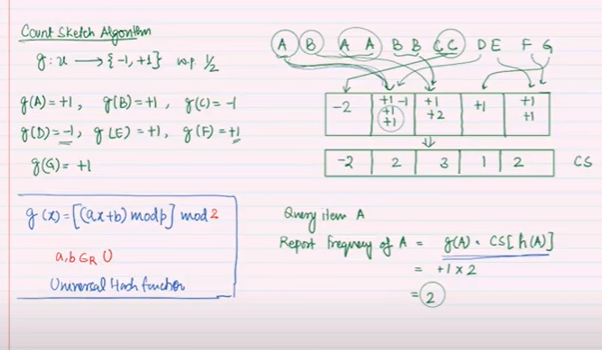 Count Sketch Algorithm
g : u → {-1, +1} w.p 1/2
g(A) = +1, g(B) = +1, g(C) = -1
g(D) = -1, g(E) = +1, g(F) = +1
g(G) = +1
g(x) = [(ax+b) mod p] mod 2
a, b ∈R U
Universal Hash function
A B A A B B C C D E F G
-2 +1 -1 +1 +1 +1
+1 +2 +1
+1
⇓
-2 2 3 1 2 CS
Query item A
Report Frequency of A = g(A) · CS[h(A)]
= +1 × 2
= 2